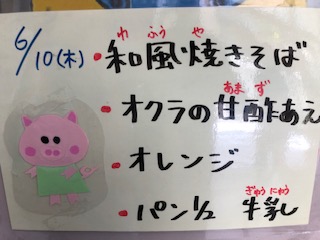 6/10(木)
わ ふう や
・和風焼きそば
あま ず
・オクラの甘酢あえ
・オレンジ
ぎゅう にゅう
・パン1/2 牛乳